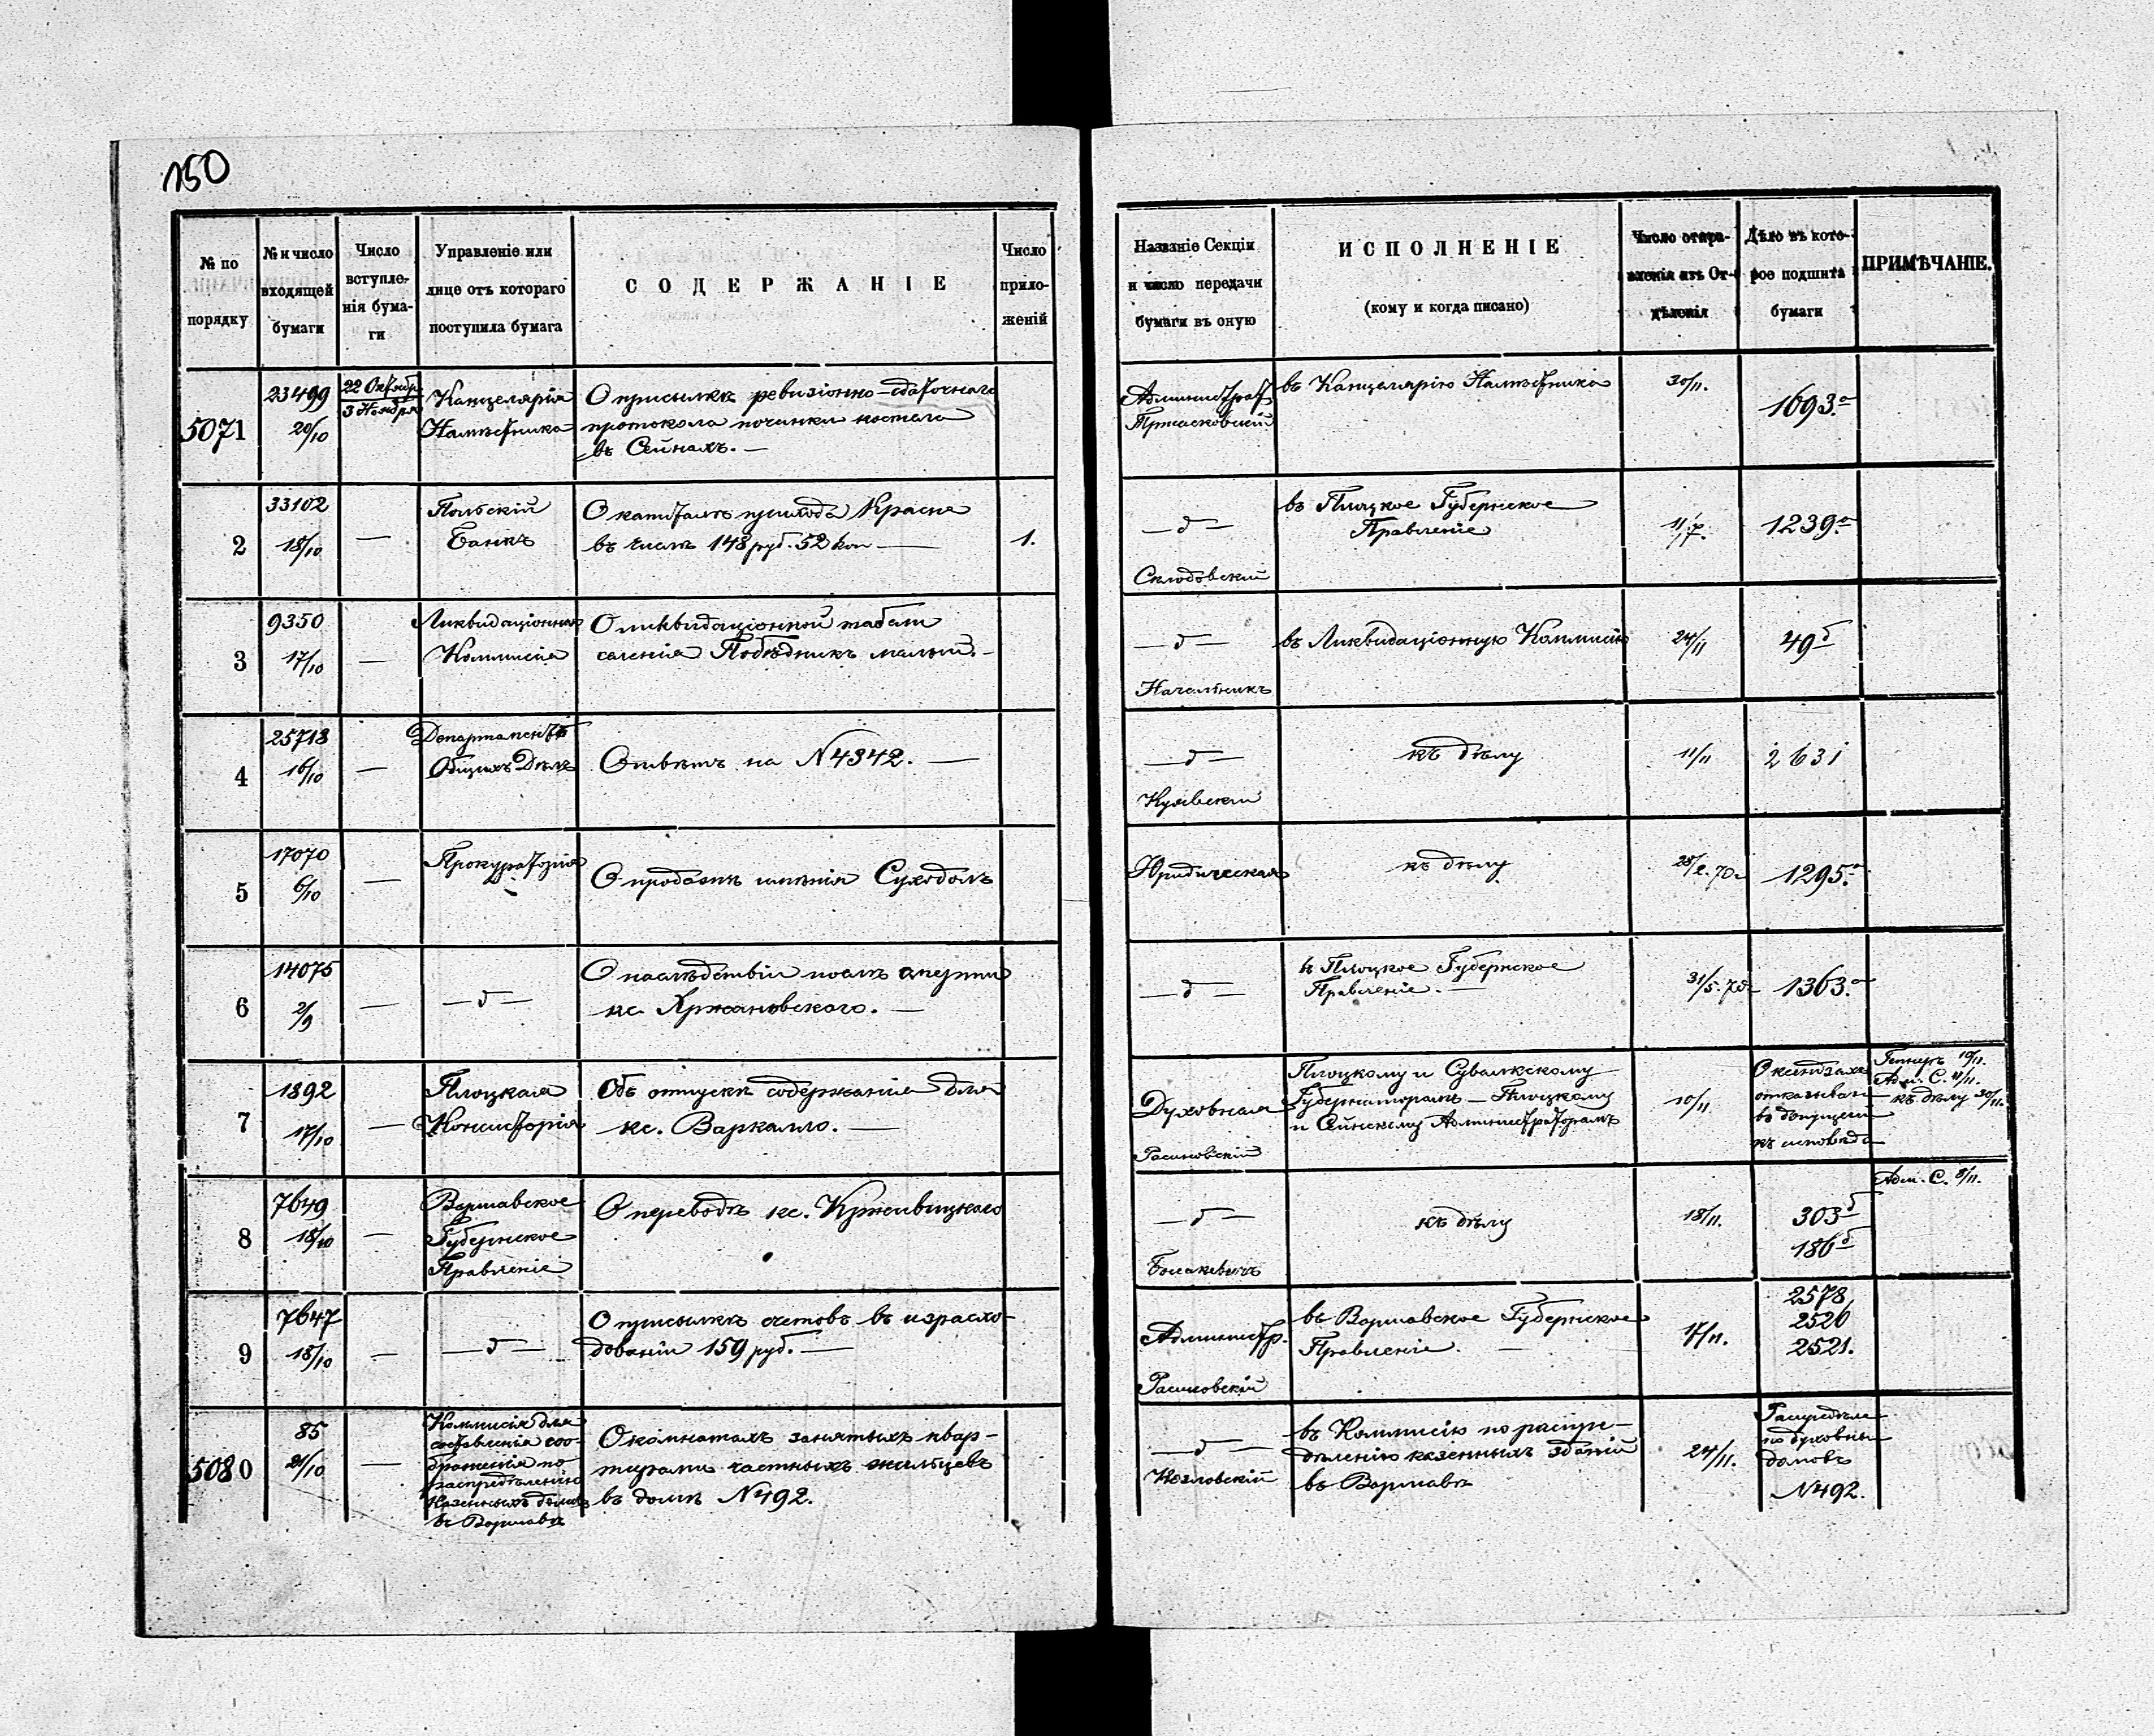 150
№ по
порядку
№ и число
входящей
бумаги
Число
вступле-
нія бума-
ги
Управленіе или
лице отъ котораго
поступила бумага
СОДЕРЖАНІЕ
Число
прило-
женій
Названіе Секціи
и число передачи
бумаги въ оную
ИСПОЛНЕНІЕ
(кому и когда писано)
Число отпра-
вленія изъ От-
дѣленія
Дѣло въ кото-
рое подшита
бумаги
ПРИМѢЧАНІЕ.
5071
23499
20/10
22 Октябр
3 Ноября
Канцелярія
Намѣстника
О присылкѣ ревизіонно-сдаточнаго
протокола починки костела
въ Сейнахъ. —
Администрат
въ Канцелярію Намѣстника
30/11.
1693.а
2
33102
18/10
—
Польскій
Банкъ
О капиталѣ прихода Красне
въ числѣ 148 руб. 52 коп —
1.
— д —
Склодовскій
въ Плоцкое Губернское
Правленіе
1239.а
3
9350
17/10
—
Ликвидаціонная
Коммисія
О ликвидаціонной табели
селенія Побѣдникъ малый. –
— д —
Начальникъ
въ Ликвидаціонную Коммисію
24/11
49б
4
25718
16/10
—
Департаментъ
Общихъ Дѣлъ
Отвѣтъ на №4342. —
— д —
къ дѣлу
11/11
2631
5
17070
6/10
—
Прокураторія
О продажѣ имѣнія Суходолъ
Юридическая
къ дѣлу
28/2. 70
1295.а
6
14075
2/9
—
— д —
О наслѣдствіи послѣ смерти
кс. Хржановскаго. —
— д —
в Плоцкое Губернское
Правленіе. —
31/5. 70
1363.а
7
1892
17/10
—
Плоцкая
Консисторія
Объ отпускѣ содержанія для
кс. Варкалло. —
Духовная
Плоцкому и Сувалкскому
Губернаторамъ — Плоцкому
и Сейнскому Администраторамъ
10/11
О ксендзахъ
къ исповѣди
10/11.
Адм. С. 11/11.
къ дѣлу 30/11.
8
7649
18/10
—
Варшавское
Губернское
Правленіе
О переводѣ кс. Кржывицкаго
— д —
къ дѣлу
18/11.
303б
186б
Адм. С. 8/11.
9
7647
18/10
—
— д —
О присылкѣ счетовъ въ израсхо-
дованіи 159 руб. —
Администр.
въ Варшавское Губернское
Правленіе. —
17/11.
2578
2520
2521.
5080
85
21/10
—
Коммисія для
составленія соо-
браженія по
распредѣленію
Казенныхъ домовъ
въ Варшавѣ
О комнатахъ занятыхъ квар-
тирами частныхъ жильцевъ
въ домѣ №492.
— д —
Козловскій
въ Коммисію по распре-
дѣленію казенныхъ зданій
въ Варшавѣ
24/11.
домовъ
№492.